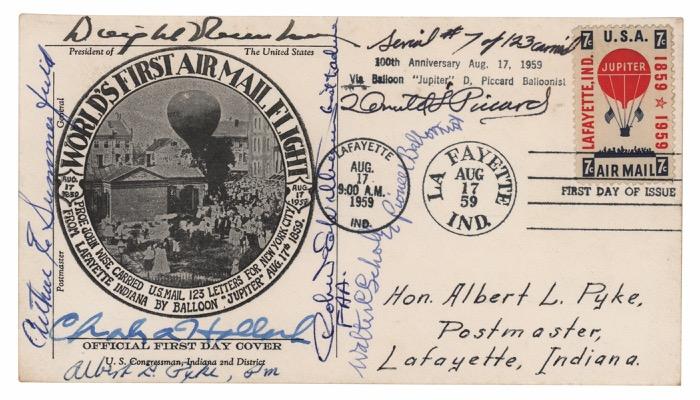 Dwight Eisenhower
President of The United States
WORLD'S FIRST AIR MAIL FLIGHT
AUG. 17 1859
AUG. 17 1959
PROF. JOHN WISE CARRIED U.S. MAIL, 123 LETTERS FOR NEW YORK CITY,
FROM LAFAYETTE INDIANA BY BALLOON "JUPITER" AUG. 17TH 1859.
Postmaster General
Arthur E Summerfield
Charles A Halleck
OFFICIAL FIRST DAY COVER
U. S. Congressman, Indiana 2nd District
Albert L. Pyke, Pm
FAA.
Walter P. Scholz
Pioneer Balloonist
Serial # 7 of 123 carried
100th Anniversary Aug. 17, 1959
Via Balloon "Jupiter" D. Piccard Balloonist
Donald L Piccard
LAFAYETTE
AUG.
17
9:00 A.M.
1959
IND.
LA FAYETTE
AUG
17
59
IND.
7c U.S.A. 7c
JUPITER
LAFAYETTE, IND.
1859 1959
7c AIR MAIL 7c
FIRST DAY OF ISSUE
Hon. Albert L. Pyke,
Postmaster,
Lafayette, Indiana.